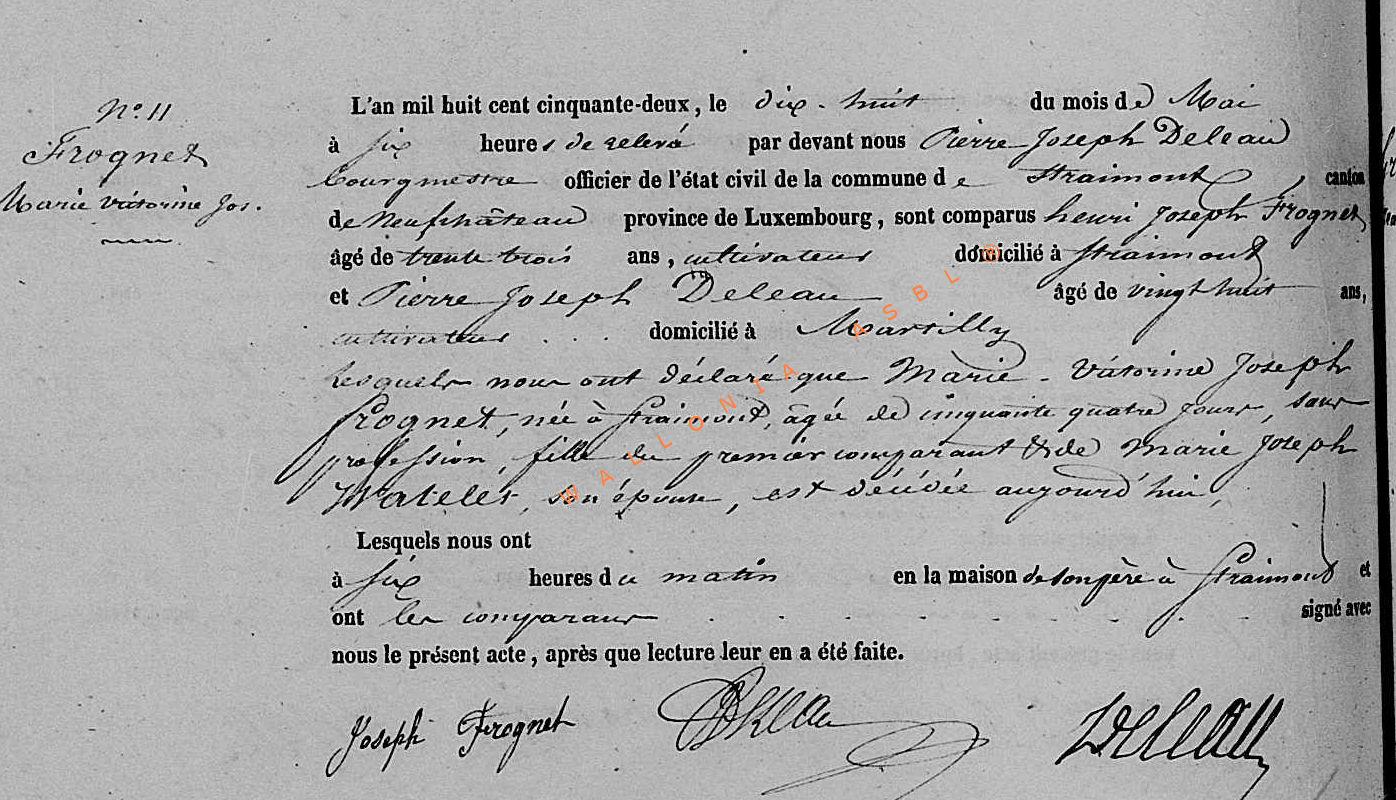 N° 11
Frognet
Marie Victorine Jos.
L'an mil huit cent cinquante-deux, le dix-huit du mois de Mai
à six heures de relevé par devant nous Pierre Joseph Deleau
bourgmestre officier de l'état civil de la commune de Straimont, canton
de Neufchâteau province de Luxembourg, sont comparus henri Joseph Frognet
âgé de trente trois ans, cultivateur domicilié à Straimont
et Pierre Joseph Deleau âgé de vingt huit ans,
cultivateur . . . domicilié à Martilly
lesquels nous ont déclaré que Marie - Victorine Joseph
Frognet, née à Straimont, âgée de cinquante quatre jours, sans
profession, fille du premier comparant & de Marie Joseph
Watelet, son épouse, est décédée aujourd'hui,
Lesquels nous ont
à six heures du matin en la maison de son père à Straimont et
ont les comparans signé avec
nous le présent acte, après que lecture leur en a été faite.
Joseph Frognet Deleau Deleau
WALLONIA ASBL ©